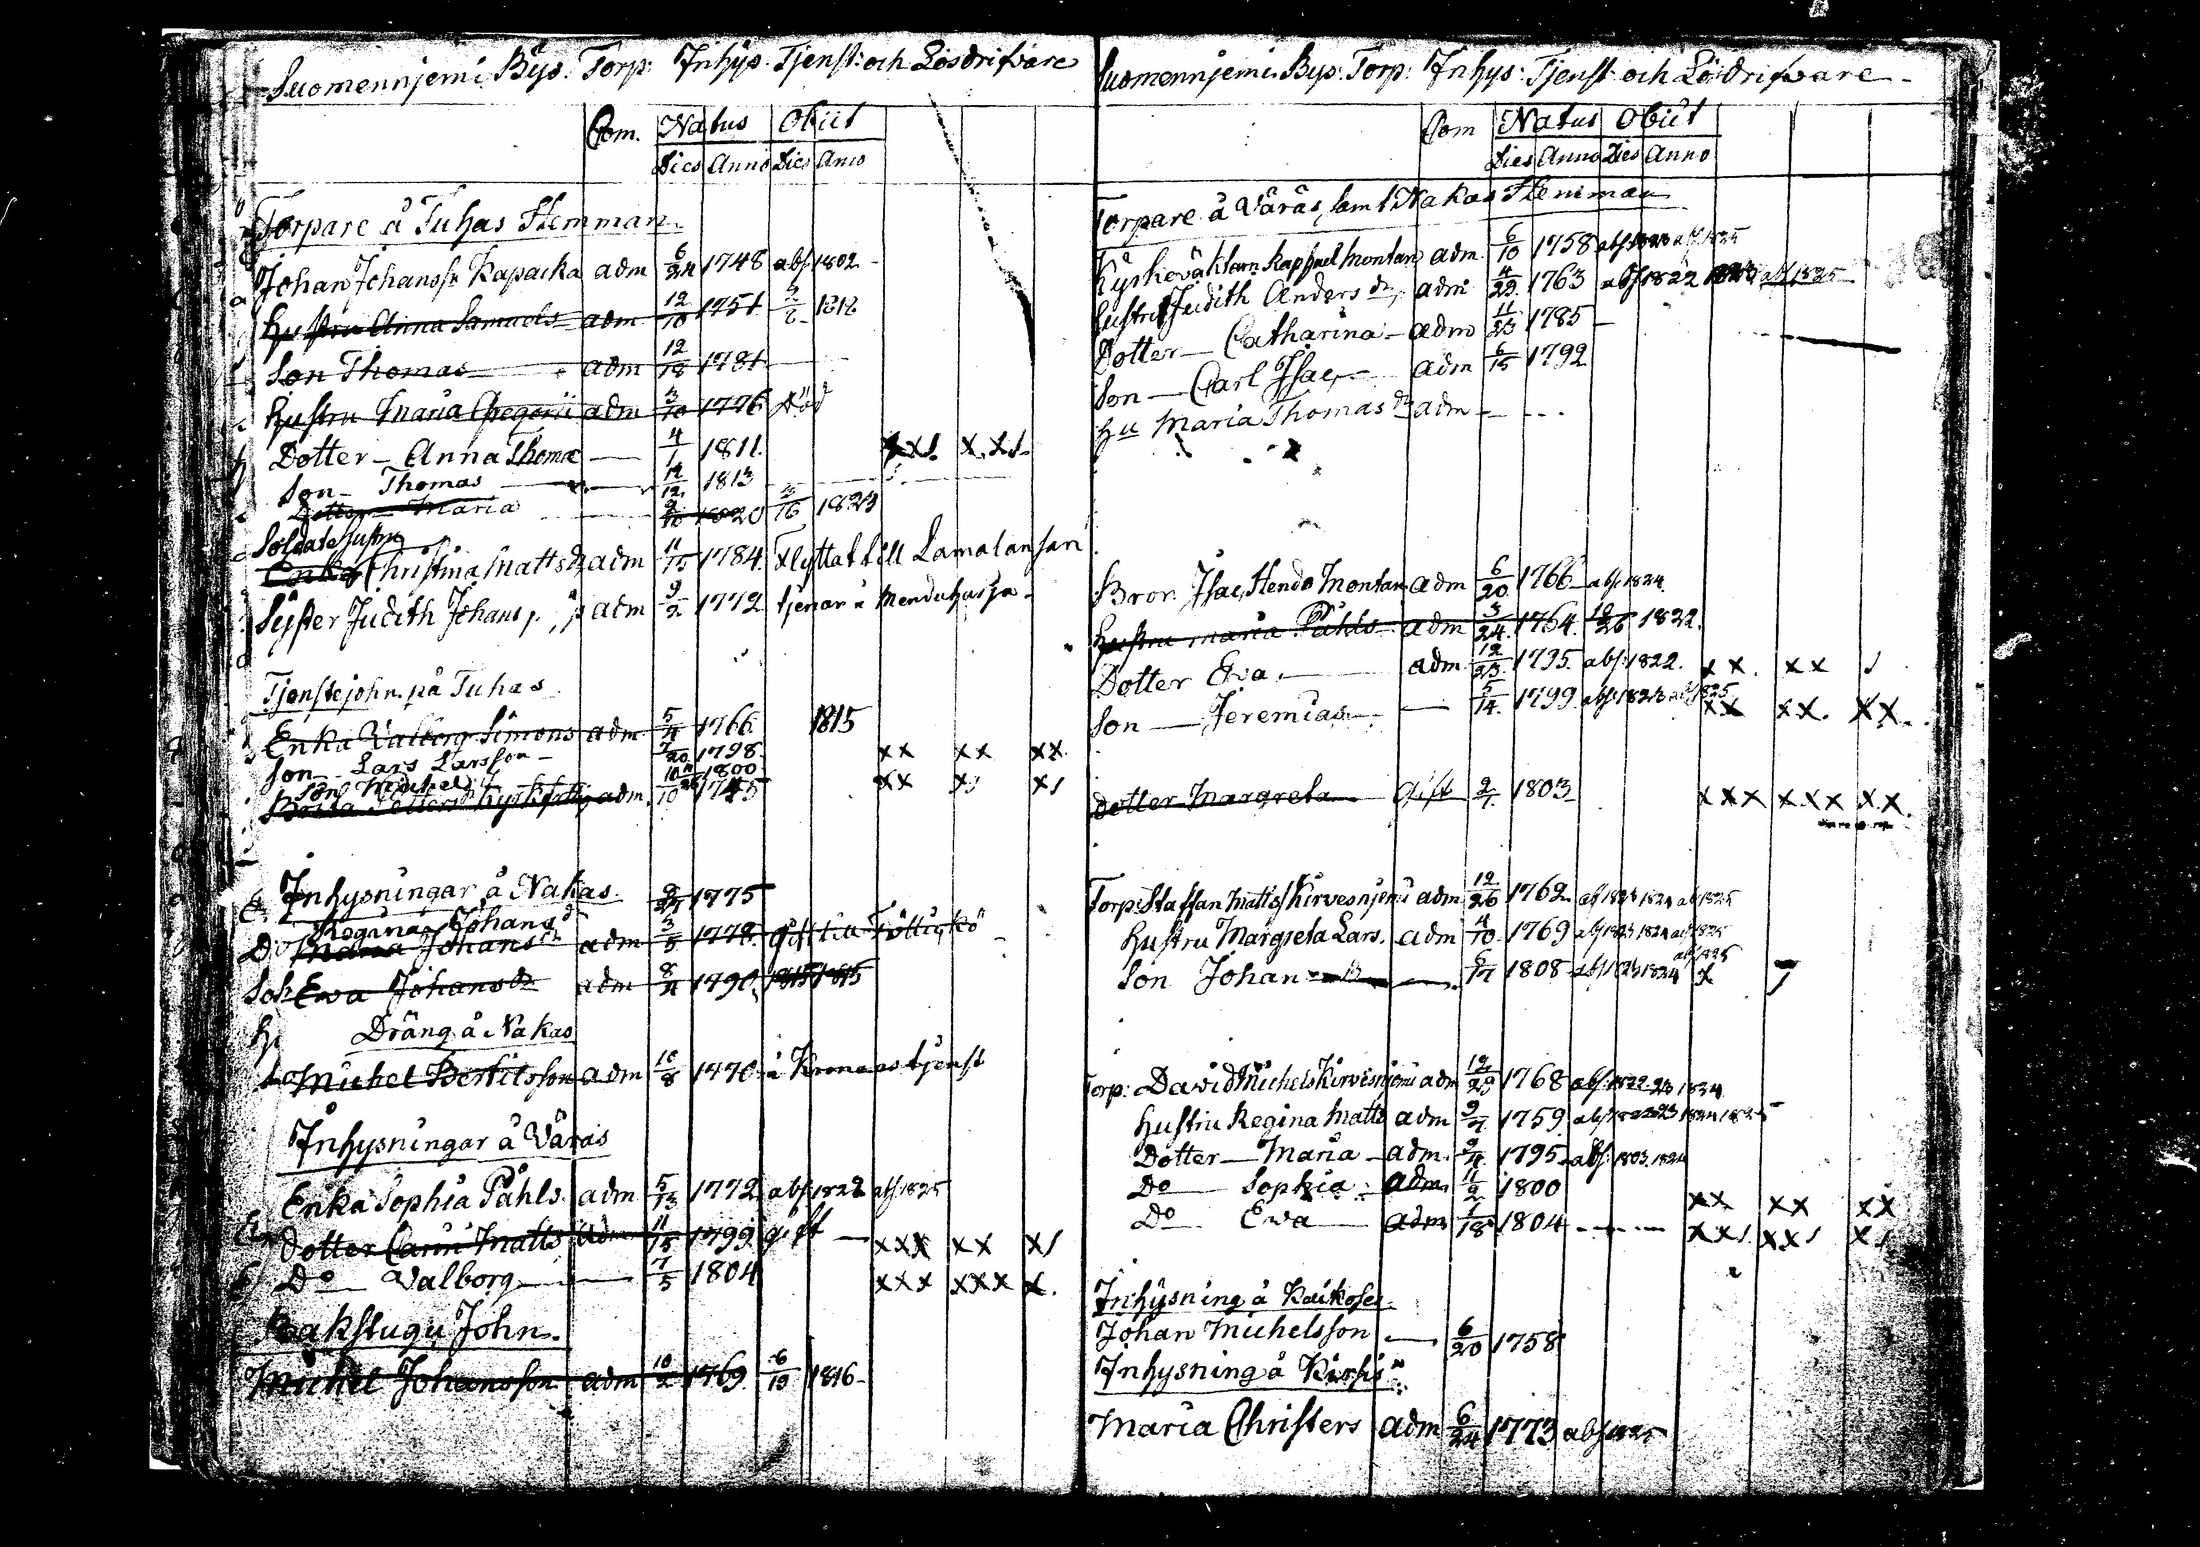 Suomennjemi Bys. Torp: Inhys Tjenst: och Lösdrifvare
Com. Natus Obiit
Dies Anno Dies Anno
Torpare å Tuhas Hemman
Johan Johanss: Kapacka adm 6/24 1748 abs 1802
Hustru Anna Samuels adm 12/10 1751 1818
Son Thomas adm 12/18 1781
Hustru Maria adm 3/10 1776 död
Dotter Anna Thomæ 4/1 1811. xx/. x.x/.
Son Thomas 12/12 1813
Dotter Maria 1820 3/16 1823
Soldats Hustru
Enka Christina Matts dr adm 11/15 1784. Flyttat till Lamalansari
Syster Judith Johans adm 9/2 1772 tjenar å Menduharja
Tjenstejohn på Tuhas
Enka Valborg Simons adm 5/4 1766 1815
Son Lars Larsson 7/20 1798 xx xx xx
Son Michel 1800 xx x/ x/
adm. 10 1745
Inhysningar å Nakas
Regina Johans dr 1775
Do Maria Johans dr adm 3/5 1778. gift till
Ewa Johans dr adm 8/4 1790. 1815 1815
Dräng å Nakas
Michel Bertilsson adm 10/8 1770 å Kronans tjenst
Inhysningar å Väräs
Enka Sophia Påhls adm 5/13 1772 abs 1822 abs 1825
Dotter Carin Matts adm 11/15 1799 gift xxx xx x/
Do Valborg 7/5 1804 xxx xxx x.
Bakstugu John.
Michel Johansson adm 10/2 1769 6/19 1816
Suomennjemi Bys: Torp: Inhys: Tjenst och Lösdrifvare
Com Natus Obiit
Dies Anno Dies Anno
Torpare å Väräs, samt Nakas Hemman
Kyrkoväktarn Raphael Montan adm 6/10 1758 abs 1823 abs 1825
Hustru Judith Anders dr adm 4/29 1763 abs 1822 1823 abs 1825
Dotter Catharina adm 11/23 1785
Son Carl Isac adm 6/15 1792
Hu Maria Thomas dr adm
Bror Isac Hendr Montan adm 6/20 1766 abs. 1824.
Hustru Maria Påhls adm 3/24 1764. 10/26 1822.
Dotter Ewa. adm 12/23 1795. abs. 1822. xx. xx /
Son Jeremias 5/14 1799 abs 1823 abs 1825 xx xx. xx.
Dotter Margreta Gift 2/7 1803 xxx xxx xx.
Torp: Staffan Matts Kirvesnjemi adm 12/26 1762 abs 1823 1824 abs 1825
Hustru Margreta Lars. adm 4/10 1769 abs 1823 1824 abs 1825
Son Johan 1808 abs 1823 1824 abs 1825 x
Torp: David Michels Kirvesnjemi adm 12/29 1768 abs 1822 23 1824
Hustru Regina Matts adm 9/7 1759 abs 1822 23 1824 1825
Dotter Maria adm. 1795 abs 1803. 1824
Do Sophia adm 11/2 1800 xx xx xx
Do Ewa adm 1/18 1804 xx/. xx/ x/
Inhysning å Kaikosen
Johan Michelsson 6/20 1758
Inhysning å
Maria Christers adm 6/24 1773 abs 1825